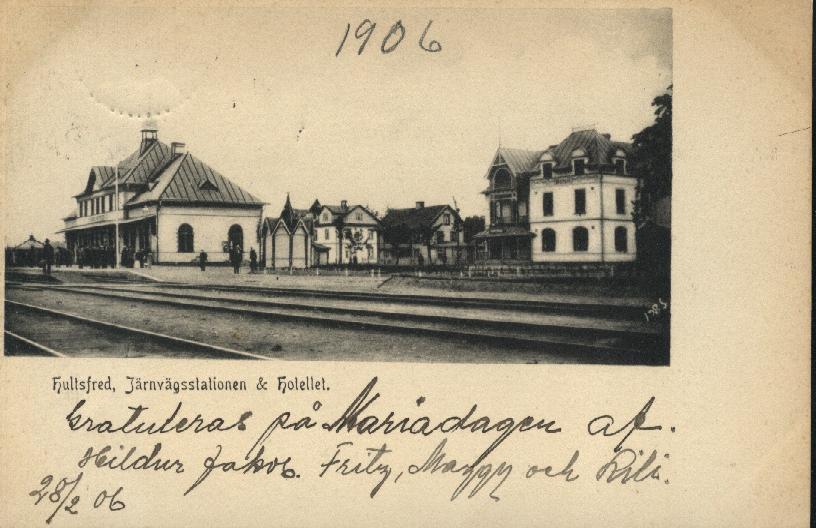 1906
1785
Hultsfred, Järnvägsstationen & Hotellet.
Gratuleras på Mariadagen af.
Hildur Jakob. Fritz, Maggy och Lili.
28/2 06